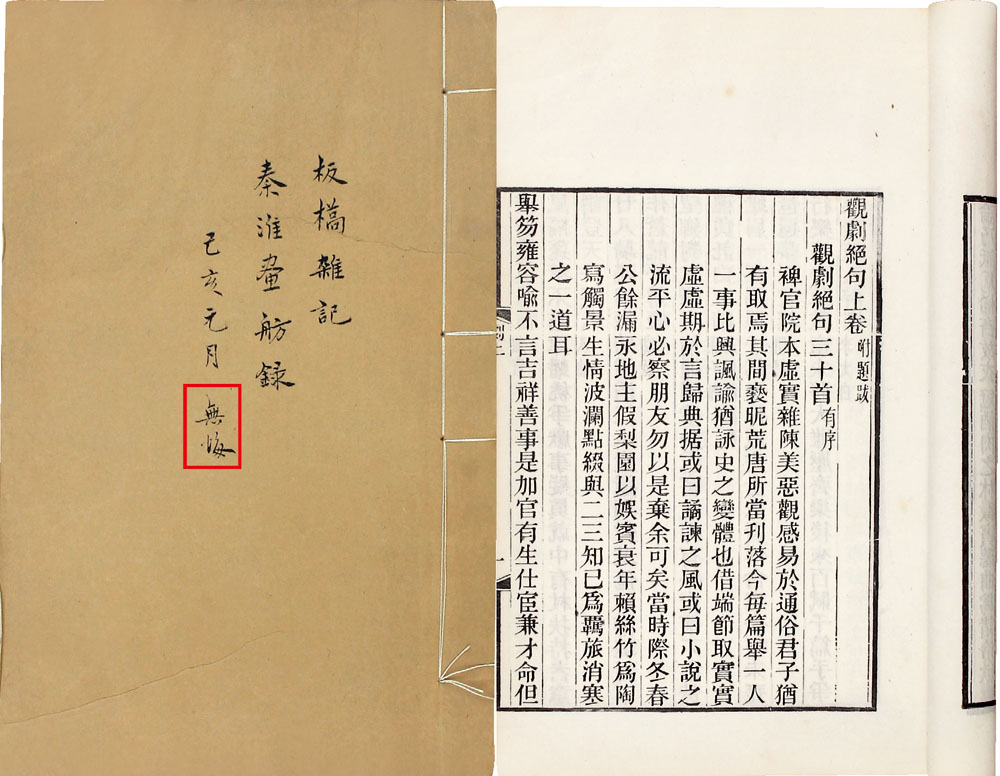 板橋雜記
秦淮畫舫錄
己亥元月
無悔
觀劇絕句上卷 附題跋
觀劇絕句三十首 有序
稗官院本虛實雜陳美惡觀感易於通俗君子猶
有取焉其間褻昵荒唐所當刋落今每篇舉一人
一事比興諷諭猶詠史之變體也借端節取實實
虛虛期於言歸典据或曰譎諫之風或曰小說之
流平心必察朋友勿以是棄余可矣當時際冬春
公餘漏永地主假梨園以娛賓衰年賴絲竹爲陶
寫觸景生情波瀾點綴與二三知已爲羇旅消寒
之一道耳
舉笏雍容喩不言吉祥善事是加官有生仕宦兼才命但